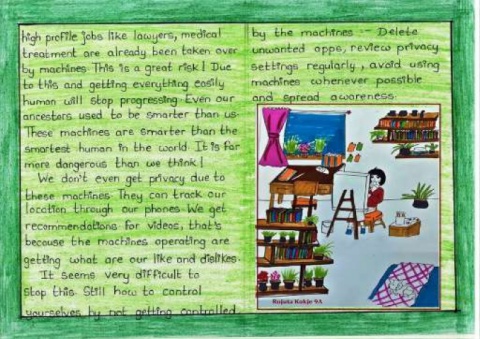 high profile jobs like lawyers, medical
treatment are already been taken over
by machines. This is a great risk! Due
to this and getting everything easily
human will stop progressing. Even our
ancestors used to be smarter than us.
These machines are smarter than the
smartest human in the world. It is far
more dangerous than we think!
We don't even get privacy due to
these machines. They can track our
location through our phones. We get
recommendations for videos, that's
because the machines operating are
getting what are our like and dislikes.
It seems very difficult to
stop this. Still how to control
yourselves by not getting controlled
by the machines -- Delete
unwanted apps, review privacy
settings regularly, avoid using
machines whenever possible
and spread awareness.
Rujuta Kokje 9A